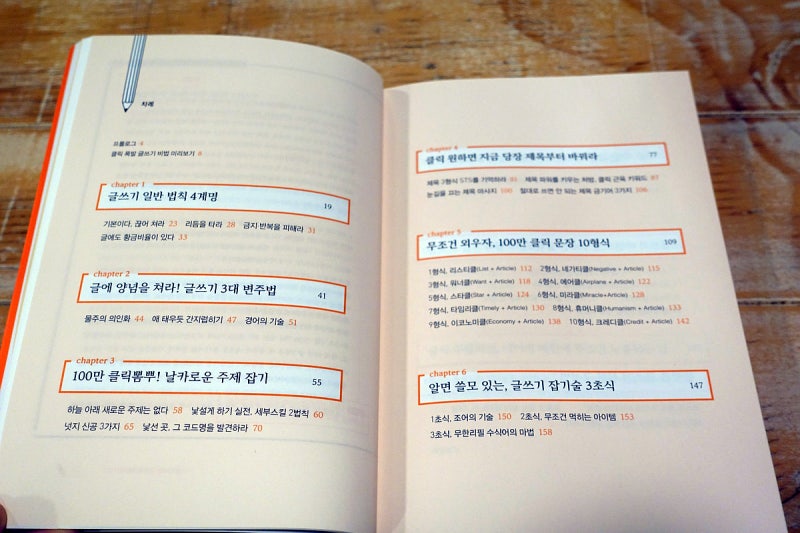 차례
프롤로그 4
클릭 폭발 글쓰기 비법 미리보기 8
chapter 1
글쓰기 일반 법칙 4계명 19
기본이다, 끊어 쳐라 23 리듬을 타라 28 금지 반복을 피해라 31
글에도 황금비율이 있다 33
chapter 2
글에 양념을 쳐라! 글쓰기 3대 변주법 41
물주의 의인화 44 애 태우듯 간지럽히기 47 경어의 기술 51
chapter 3
100만 클릭뽐뿌! 날카로운 주제 잡기 55
하늘 아래 새로운 주제는 없다 58 낯설게 하기 실전, 세부스킬 2법칙 60
넛지 신공 3가지 65 낯선 곳, 그 코드명을 발견하라 70
chapter 4
클릭 원하면 지금 당장 제목부터 바꿔라 77
제목 3형식 STS를 기억하라 81 제목 파워를 키우는 처방, 클릭 근육 키워드 87
눈길을 끄는 제목 마사지 100 절대로 쓰면 안 되는 제목 금기어 3가지 106
chapter 5
무조건 외우자, 100만 클릭 문장 10형식 109
1형식, 리스티클(List + Article) 112 2형식, 네가티클(Negative + Article) 115
3형식, 워너클(Want + Article) 118 4형식, 에어클(Airplane + Article) 122
5형식, 스타클(Star + Article) 124 6형식, 미라클(Miracle+Article) 128
7형식, 타임리클(Timely + Article) 130 8형식, 휴머니클(Humanism + Article) 133
9형식, 이코노미클(Economy + Article) 138 10형식, 크레디클(Credit + Article) 142
chapter 6
알면 쓸모 있는, 글쓰기 잡기술 3초식 147
1초식, 조어의 기술 150 2초식, 무조건 먹히는 아이템 153
3초식, 무한리필 수식어의 마법 158